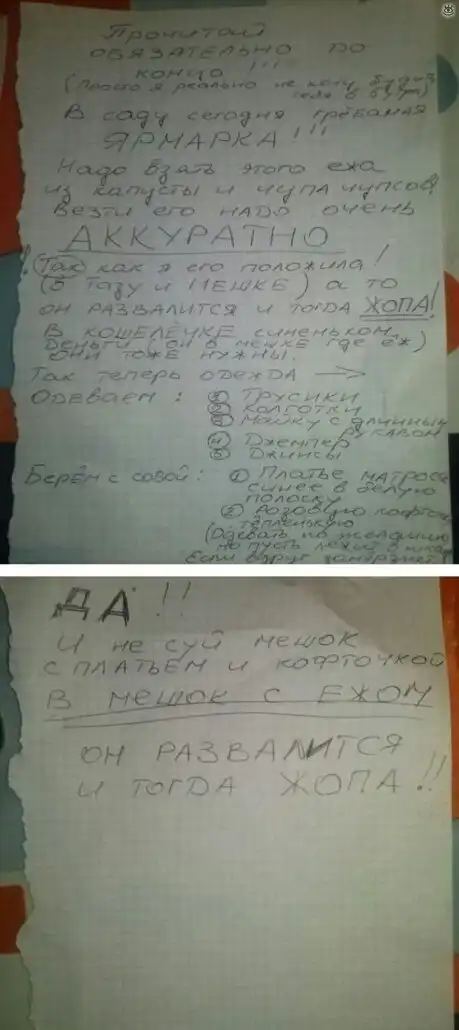 Прочитай
ОБЯЗАТЕЛЬНО ДО
КОНЦА !!!
(просто я реально не хочу будить
тебя в 6 утра)
В саду сегодня грёбаная
ЯРМАРКА!!!
Надо взять этого ежа
из капусты и чупа чупсов!
Везти его НАДО очень
АККУРАТНО
Так как я его положила!
(в тазу и МЕШКЕ) а то
он РАЗВАЛИТСЯ и тогда ЖОПА!
В КОШЕЛЁЧКЕ синеньком
деньги (он в мешке где ёж)
они тоже нужны.
Так теперь одежда →
Одеваем: ① Трусики
② Колготки
③ Майку с длинным
рукавом
④ Джемпер
⑤ Джинсы
Берём с собой: ① Платье матросс
синее в белую
полоску
② розовую кофточ
тёпленькую
(Одевать по желанию
но пусть лежит в шка
Если вдруг замёрзнет
ДА!!
И не суй мешок
с ПЛАТЬЕМ и кофточкой
В МЕШОК С ЕЖОМ
ОН РАЗВАЛИТСЯ
и тогда ЖОПА!!